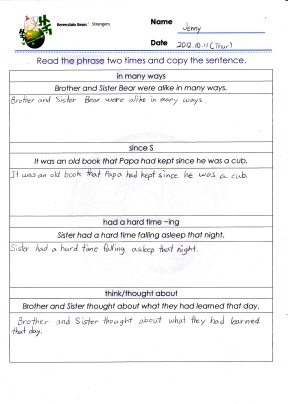 Berenstain Bears : Strangers
Name Jenny
Date 2012.10.11 (Thur)
Read the phrase two times and copy the sentence.
in many ways
Brother and Sister Bear were alike in many ways.
Brother and Sister Bear were alike in many ways.
since S
It was an old book that Papa had kept since he was a cub.
It was an old book that Papa had kept since he was a cub.
had a hard time ~ing
Sister had a hard time falling asleep that night.
Sister had a hard time falling asleep that night.
think/thought about
Brother and Sister thought about what they had learned that day.
Brother and Sister thought about what they had learned
that day.